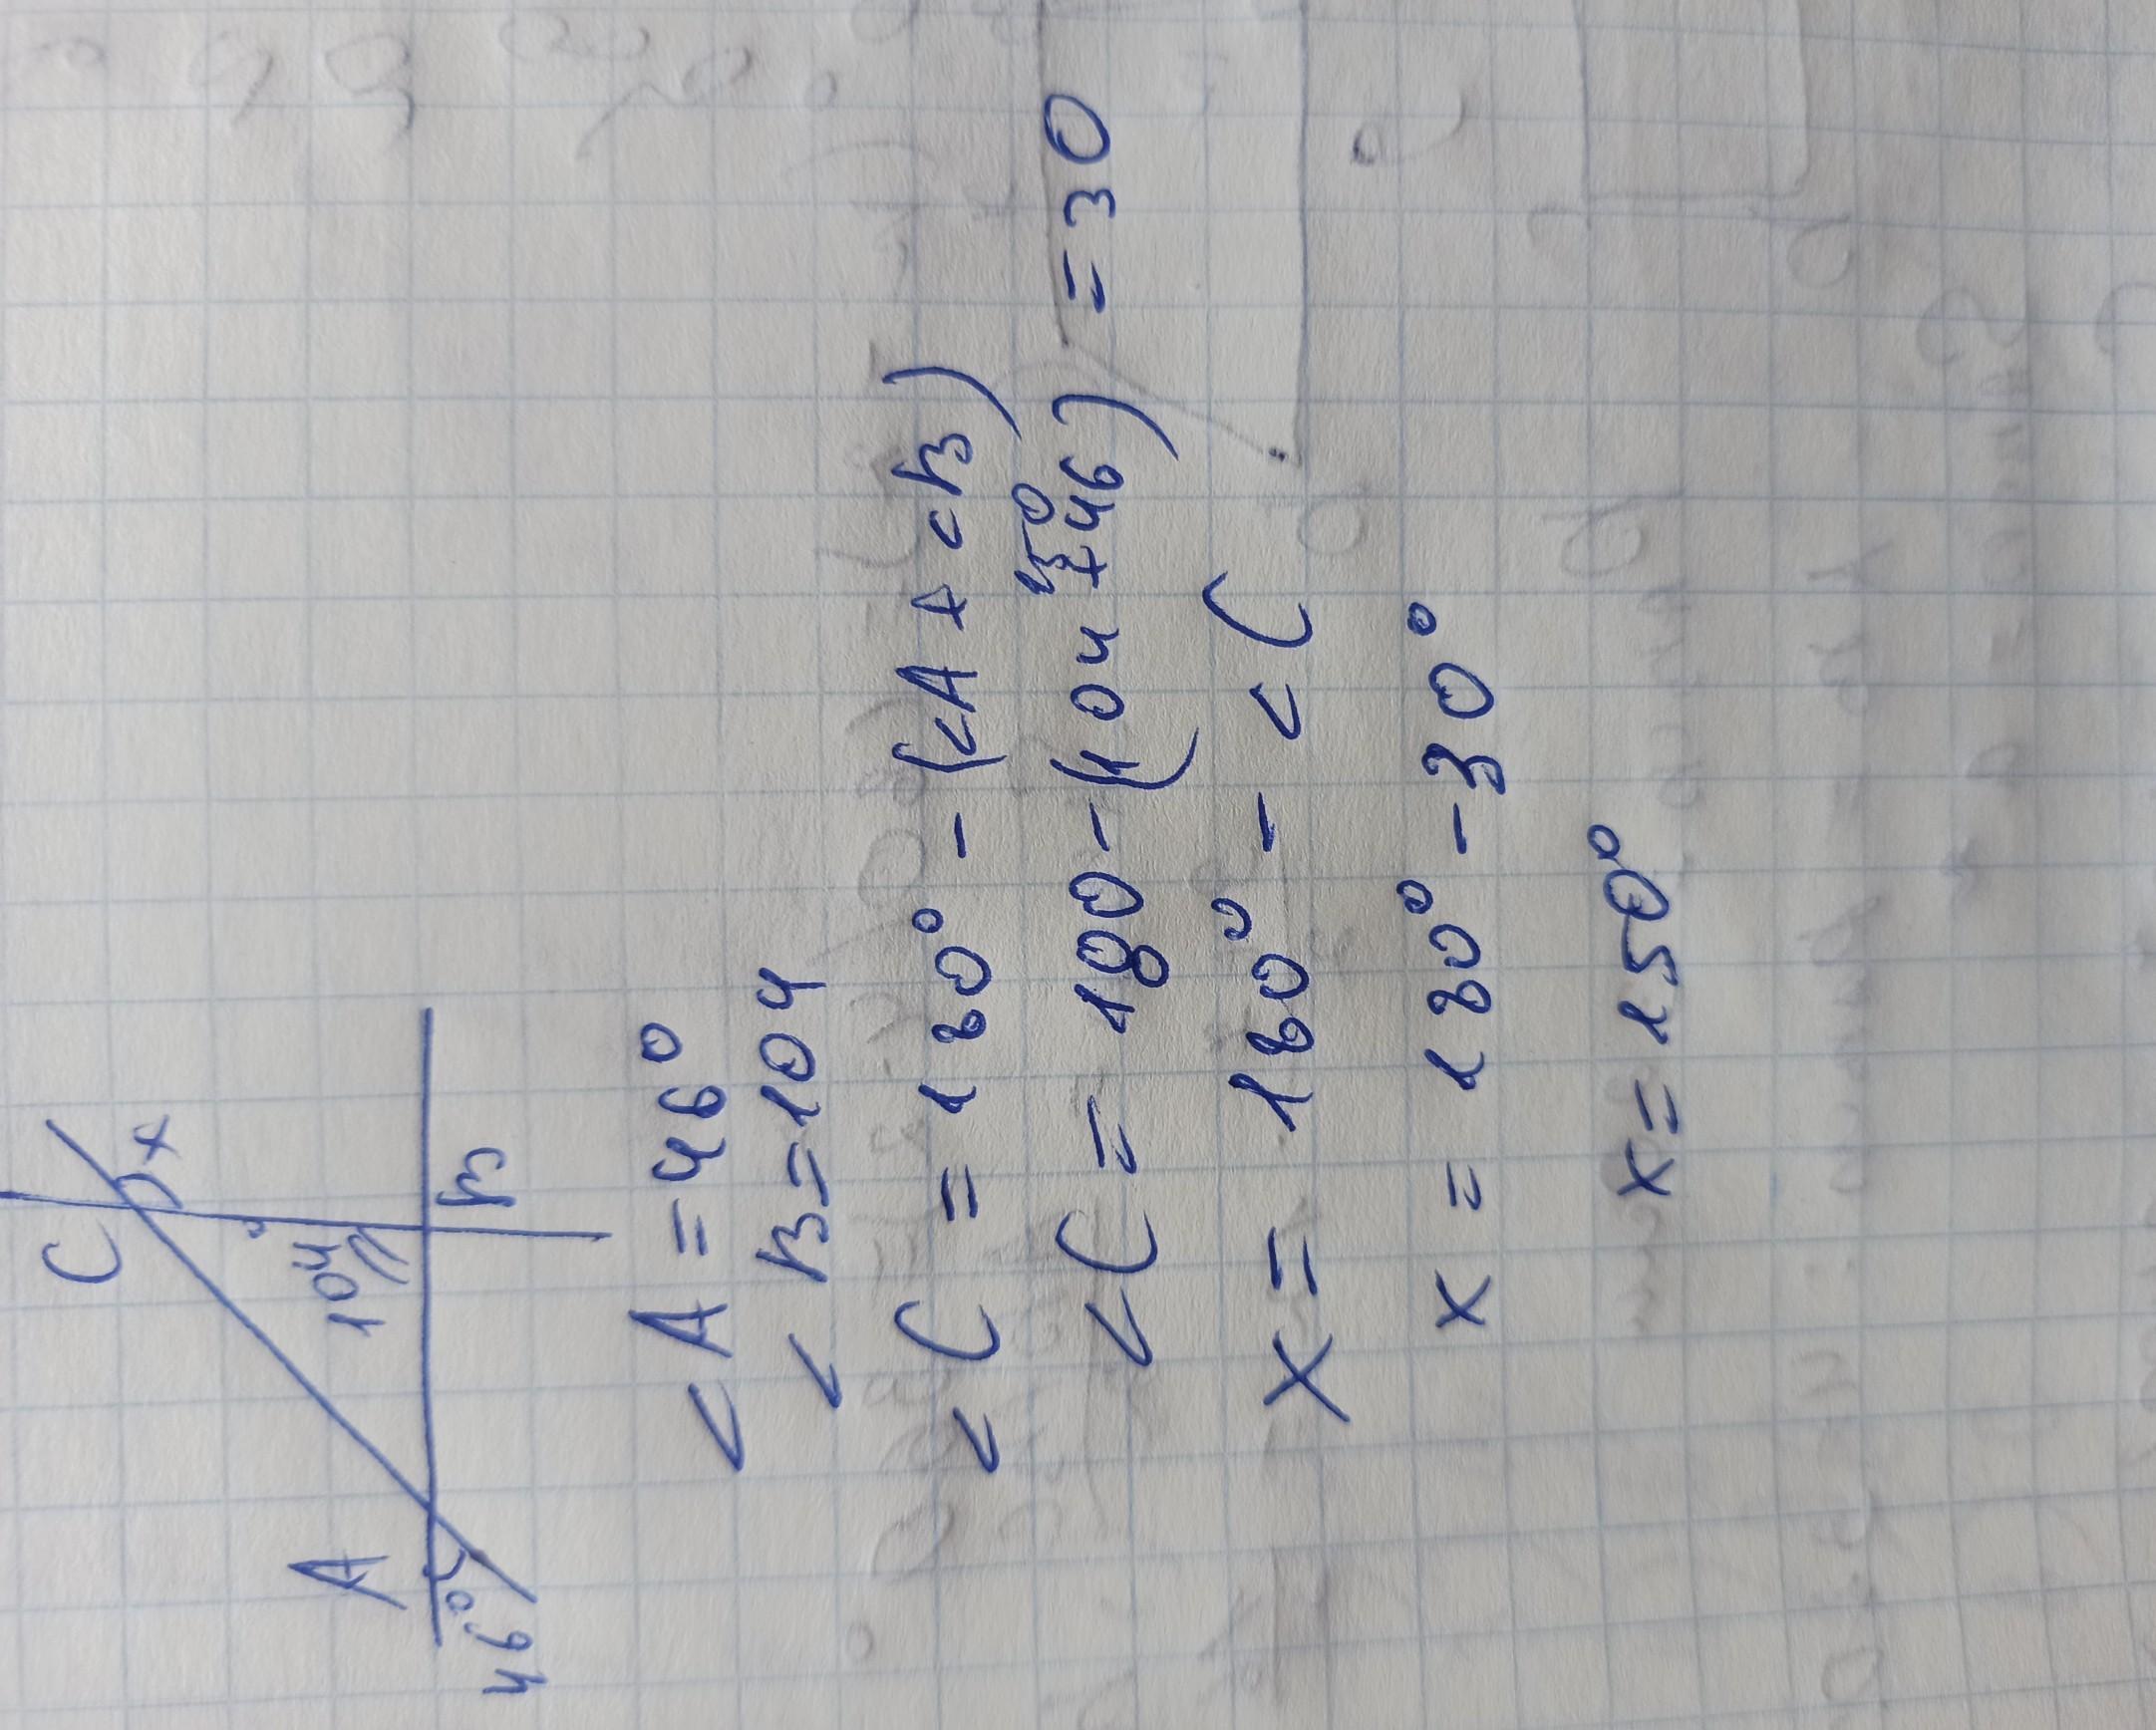 C
x
104°
A
B
46°
<A = 46°
<B = 104
<C = 180° - (<A + <B)
150
<C = 180 - (104 + 46) = 30
x = 180° - <C
x = 180° - 30°
x = 150°